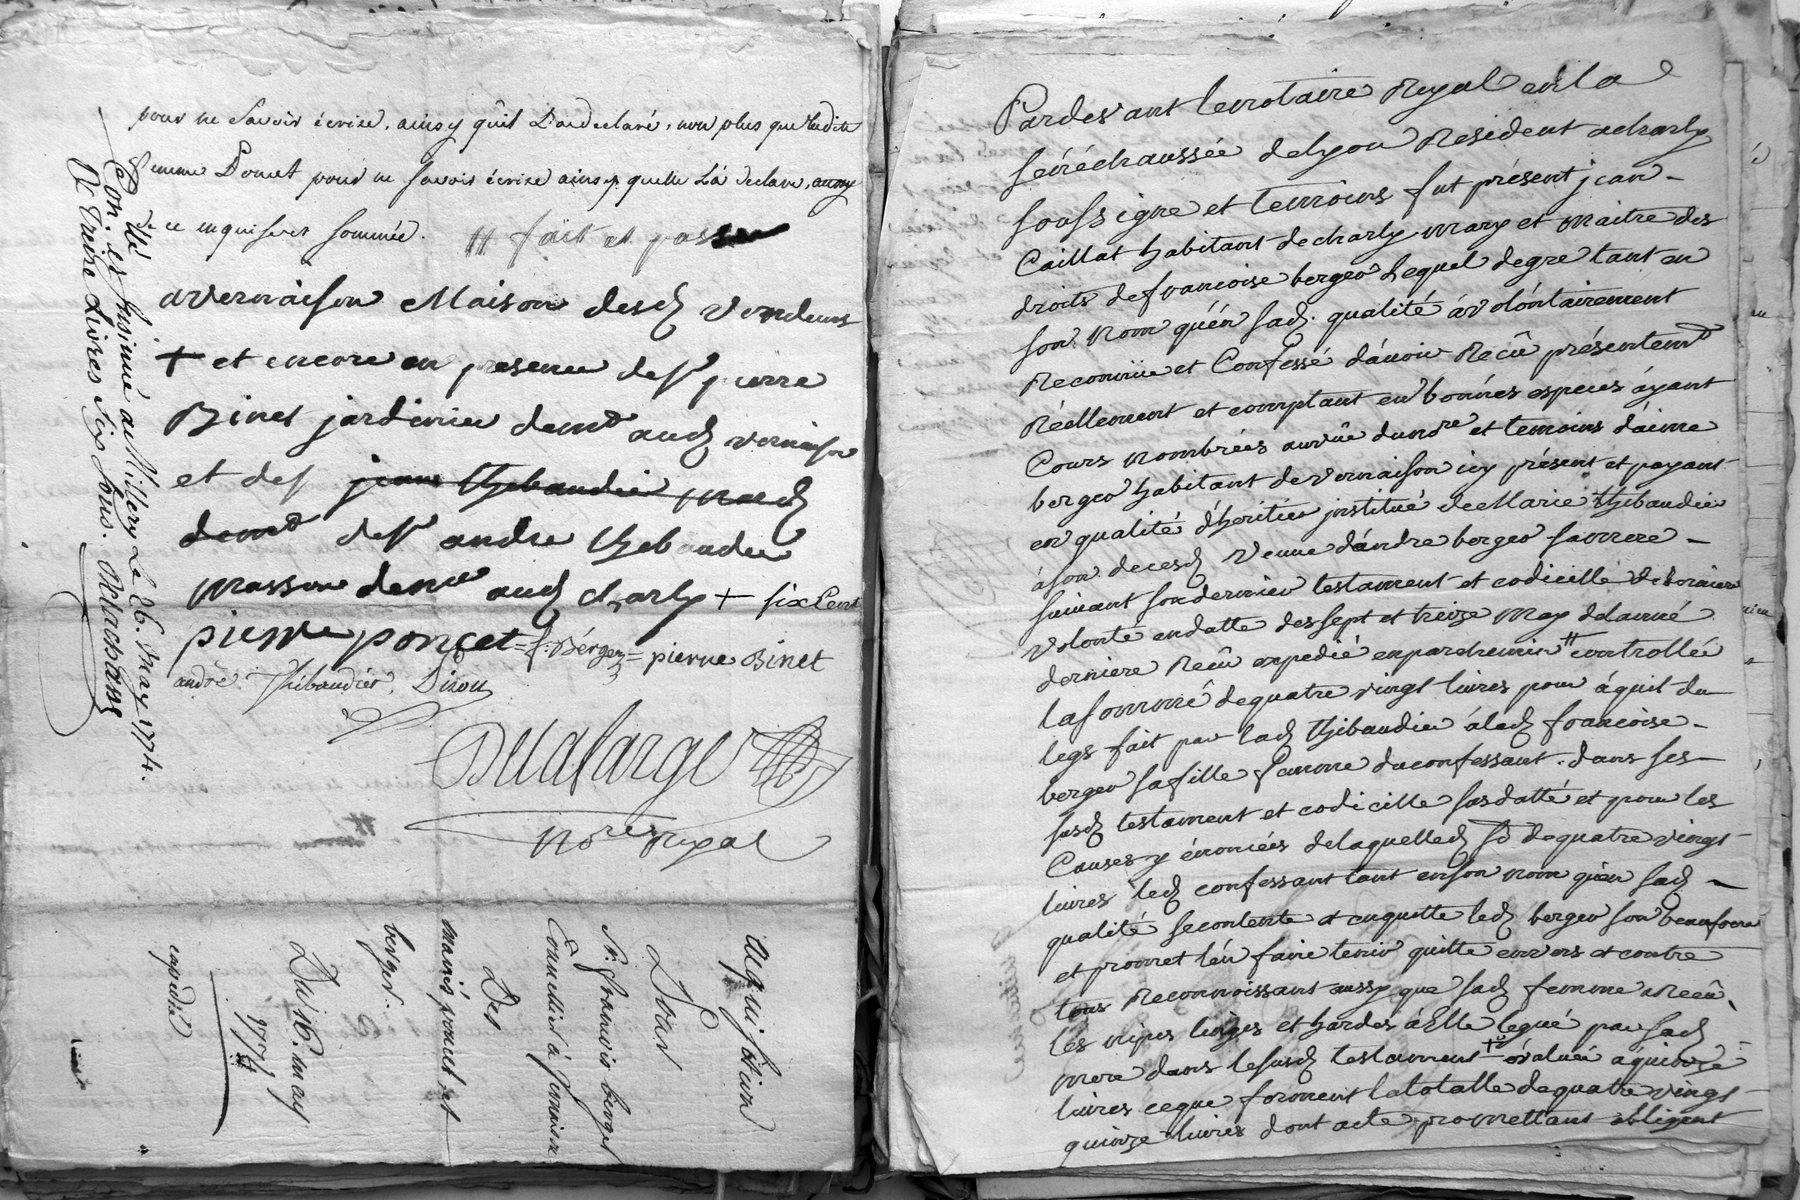 pour ne savoir ecrire, ainsy qu'il L'a declaré, non plus que ladite
femme Poncet pour ne savoir ecrire ainsy quelle L'a declaré, aussy
de ce enquise et sommée. # fait et passé
a vernaison Maison desd vendeurs
+ et encore en presence de sr pierre
Binet jardinier demt aud vernaison
et de sr jean thibaudier mard
demt de sr andre thibaudier
masson demt aud charly + six Cent
pierre poncet = f. Bérger = pierre Binet
andré Thibaudier. Dizou
Delafarge
Nore royal
Con. et Insinué a Millery Le 26. May 1774.
R. Treize Livres six sous. Delachassé
aquisition
Pour
Sr. francois berger
Tonnellier à vernaison
Des
mariés poncet et
berger.
Du 16. may
1774
expedié
Pardevant le notaire Royal en la
sénéchaussée de lyon Résident a charly
soussigné et temoins fut présent jean
Caillat habitant de charly mary et maitre des
droits de francoise berger Lequel de gré tant en
son nom qu'én sad. qualité á volontairement
Reconnüe et Confessé d'avoir Recû présentemt
Réellement et comptant en bonnes especes áyant
Cours nombrées au vûe du nore et temoins d'aimé
berger habitant de vernaison icy présent et payant
en qualité d'heritier institué de Marie thibaudier
á son decesd veuve d'andre berger sa mere
suivant son dernier testament et codicille de derniere
volonté en datte des sept et treize may de l'année
derniere Reçu expedié en parchemin # controllée
la somme de quatre vingt livres pour áquit du
legs fait par lad thibaudier á lad francoise
berger sa fille femme du confessant. dans ses
susd testament et codicille susdatté et pour les
Causes y énoncées de laquelled se de quatre vingt
livres led confessant tant en son nom qu'en sad
qualité se contente et enquitte led berger son beaufrere
et promet l'én faire tenir quitte envers et contre
tous Reconnoissant aussy que sad femme a Reçû
les nipes linges et hardes á Elle legué par sad
mere dans le susd testament évaluée a quinze
livres ce que forment la totalle de quatre vingt
quinze livres dont acte promettant obligent